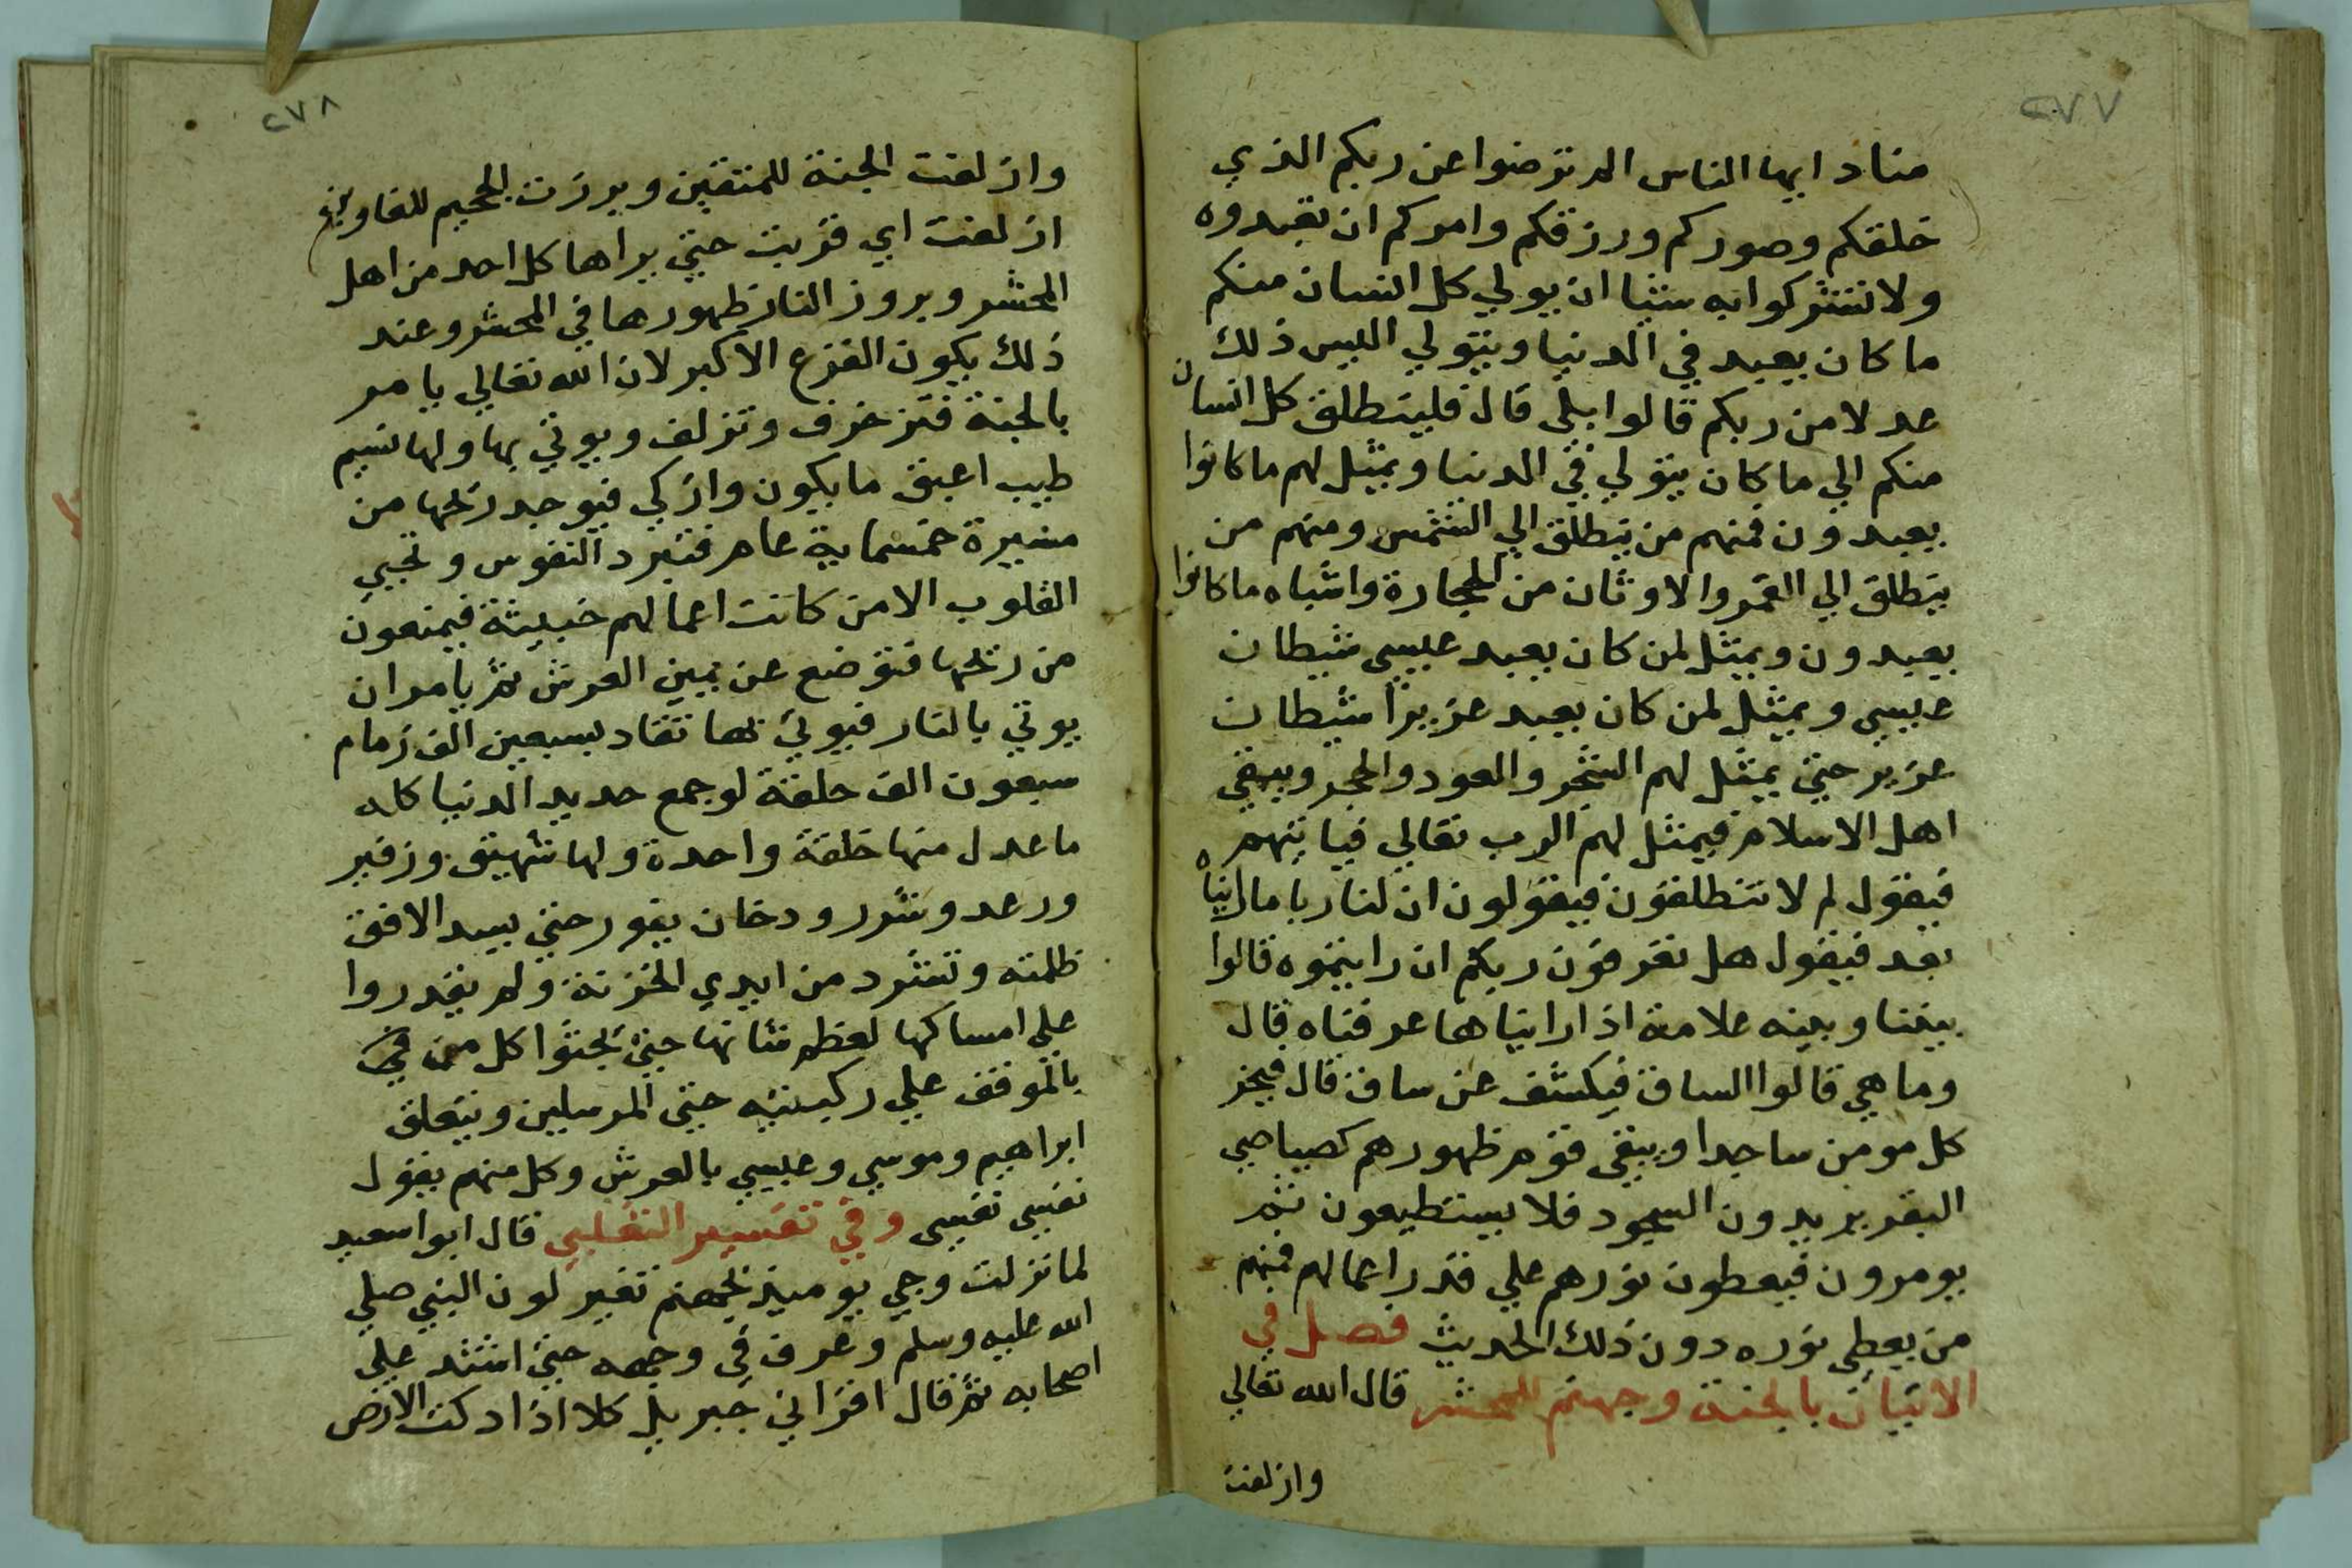 ٢٧٧
مناد ايها الناس الم ترضوا عن ربكم الذي
خلقكم وصوركم ورزقكم وامركم ان تعبدوه
ولا تشركوا به شيا ان يولي كل انسان منكم
ما كان يعبد في الدنيا ويتولي اليس ذلك
عدلا من ربكم قالوا بلي قال فلينطلق كل انسان
منكم الي ما كان يتولي في الدنيا ويمثل لهم ما كانوا
يعبدون فمنهم من ينطلق الي الشمس ومنهم من
ينطلق الي القمر والاوثان من الحجارة واشباه ما كانوا
يعبدون ويمثل لمن كان يعبد عيسي شيطان
عيسي ويمثل لمن كان يعبد عزيرا شيطان
عزير حتي يمثل لهم الشجر والعود والحجر ويبقي
اهل الاسلام فيمثل لهم الرب تعالي فياتيهم
فيقول لم لا تنطلقون فيقولون ان لنا ربا ما رايناه
بعد فيقول هل تعرفون ربكم ان رايتموه قالوا
بيننا وبينه علامة اذا رايناها عرفناه قال
وما هي قالوا الساق فيكشف عن ساق قال فيخر
كل مومن ساجدا ويبقي قوم ظهورهم كصياصي
البقر يريدون السجود فلا يستطيعون ثم
يومرون فيعطون نورهم علي قدر اعمالهم فمنهم
من يعطي نوره دون ذلك الحديث فصل في
الاتيان بالجنة وجهنم للمحشر قال الله تعالي
وازلفت
٢٧٨
وازلفت الجنة للمتقين وبرزت الجحيم للغاوين
ازلفت اي قربت حتي يراها كل احد من اهل
المحشر وبروز النار ظهورها في المحشر وعند
ذلك يكون الفزع الاكبر لان الله تعالي يامر
بالجنة فتزخرف وتزلف ويوتي بها ولها نسيم
طيب اعبق ما يكون وازكي فيوجد ريحها من
مسيرة خمسماية عام فتبرد النفوس وتحيي
القلوب الا من كانت اعمالهم خبيثة فيمنعون
من ريحها فتوضع عن يمين العرش ثم يامر ان
يوتي بالنار فيوتي بها تقاد بسبعين الف زمام
سبعون الف حلقة لو جمع حديد الدنيا كله
ما عدل منها حلقة واحدة ولها شهيق وزفير
ورعد وشرر ودخان يفور حتي يسد الافق
ظلمته وتشرد من ايدي الخزنة ولم يقدروا
علي امساكها لعظم شانها حتي يجثوا كل من في
بالموقف علي ركبتيه حتي المرسلين ويتعلق
ابراهيم وموسي وعيسي بالعرش وكل منهم يقول
نفسي نفسي وفي تفسير الثعلبي قال ابوا سعيد
لما نزلت وجي يوميذ بجهنم تغير لون النبي صلي
الله عليه وسلم وعرف في وجهه حتي اشتد علي
اصحابه ثم قال اقراني جبريل كلا اذا دكت الارض